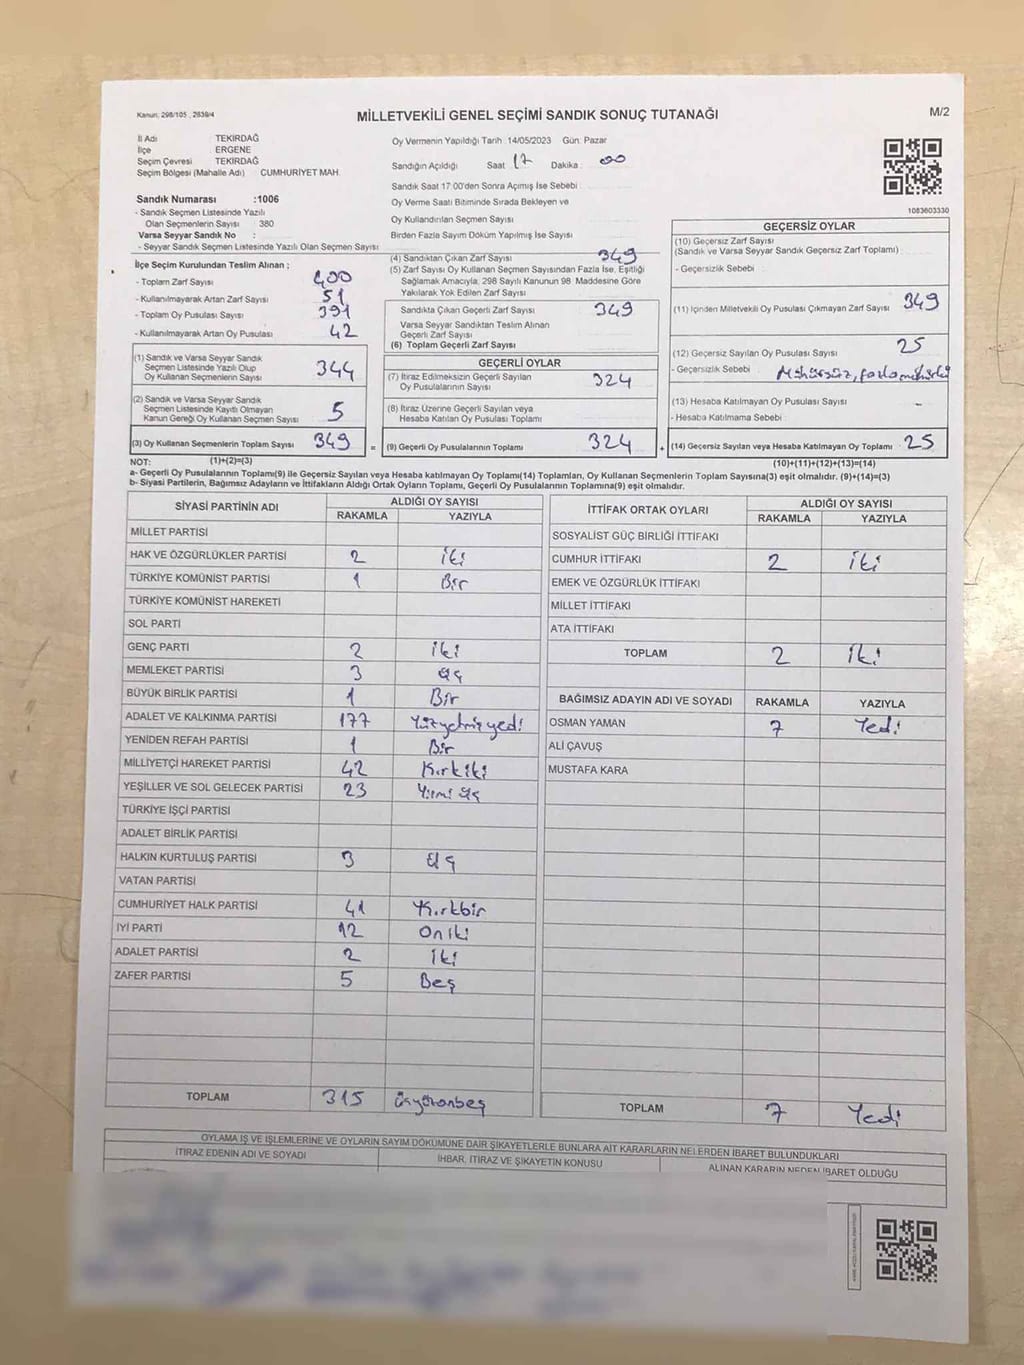 Kanun: 298/105 , 2839/4
MİLLETVEKİLİ GENEL SEÇİMİ SANDIK SONUÇ TUTANAĞI
M/2
İl Adı TEKİRDAĞ
İlçe ERGENE
Seçim Çevresi TEKİRDAĞ
Seçim Bölgesi (Mahalle Adı) CUMHURİYET MAH.
Sandık Numarası :1006
- Sandık Seçmen Listesinde Yazılı
Olan Seçmenlerin Sayısı : 380
Varsa Seyyar Sandık No :
- Seyyar Sandık Seçmen Listesinde Yazılı Olan Seçmen Sayısı
Oy Vermenin Yapıldığı Tarih : 14/05/2023 Gün: Pazar
Sandığın Açıldığı Saat 17 Dakika : 00
Sandık Saat 17:00'den Sonra Açımış İse Sebebi :
Oy Verme Saati Bitiminde Sırada Bekleyen ve
Oy Kullandırılan Seçmen Sayısı
Birden Fazla Sayım Döküm Yapılmış İse Sayısı
1083603330
İlçe Seçim Kurulundan Teslim Alınan ;
- Toplam Zarf Sayısı 400
- Kullanılmayarak Artan Zarf Sayısı 51
- Toplam Oy Pusulası Sayısı 391
- Kullanılmayarak Artan Oy Pusulası 42
(1) Sandık ve Varsa Seyyar Sandık
Seçmen Listesinde Yazılı Olup
Oy Kullanan Seçmenlerin Sayısı 344
(2) Sandık ve Varsa Seyyar Sandık
Seçmen Listesinde Kayıtlı Olmayan
Kanun Gereği Oy Kullanan Seçmen Sayısı 5
(3) Oy Kullanan Seçmenlerin Toplam Sayısı 349 =
(1)+(2)=(3)
(4) Sandıktan Çıkan Zarf Sayısı 349
(5) Zarf Sayısı Oy Kullanan Seçmen Sayısından Fazla İse, Eşitliği
Sağlamak Amacıyla, 298 Sayılı Kanunun 98. Maddesine Göre
Yakılarak Yok Edilen Zarf Sayısı
Sandıkta Çıkan Geçerli Zarf Sayısı 349
Varsa Seyyar Sandıktan Teslim Alınan
Geçerli Zarf Sayısı
(6) Toplam Geçerli Zarf Sayısı
GEÇERLİ OYLAR
(7) İtiraz Edilmeksizin Geçerli Sayılan
Oy Pusulalarının Sayısı 324
(8) İtiraz Üzerine Geçerli Sayılan veya
Hesaba Katılan Oy Pusulası Toplamı
(9) Geçerli Oy Pusulalarının Toplamı 324 +
GEÇERSİZ OYLAR
(10) Geçersiz Zarf Sayısı
(Sandık ve Varsa Seyyar Sandık Geçersiz Zarf Toplamı) :
- Geçersizlik Sebebi :
(11) İçinden Milletvekili Oy Pusulası Çıkmayan Zarf Sayısı 349
(12) Geçersiz Sayılan Oy Pusulası Sayısı 25
- Geçersizlik Sebebi : Mühürsüz, fazla mühürlü
(13) Hesaba Katılmayan Oy Pusulası Sayısı -
- Hesaba Katılmama Sebebi :
(14) Geçersiz Sayılan veya Hesaba Katılmayan Oy Toplamı 25
(10)+(11)+(12)+(13)=(14)
NOT:
a- Geçerli Oy Pusulalarının Toplamı(9) ile Geçersiz Sayılan veya Hesaba katılmayan Oy Toplamı(14) Toplamları, Oy Kullanan Seçmenlerin Toplam Sayısına(3) eşit olmalıdır. (9)+(14)=(3)
b- Siyasi Partilerin, Bağımsız Adayların ve İttifakların Aldığı Ortak Oyların Toplamı, Geçerli Oy Pusulalarının Toplamına(9) eşit olmalıdır.
SİYASİ PARTİNİN ADI ALDIĞI OY SAYISI
RAKAMLA YAZIYLA
MİLLET PARTİSİ
HAK VE ÖZGÜRLÜKLER PARTİSİ 2 iki
TÜRKİYE KOMÜNİST PARTİSİ 1 Bir
TÜRKİYE KOMÜNİST HAREKETİ
SOL PARTİ
GENÇ PARTİ 2 iki
MEMLEKET PARTİSİ 3 üç
BÜYÜK BİRLİK PARTİSİ 1 Bir
ADALET VE KALKINMA PARTİSİ 177 Yüzyetmişyedi
YENİDEN REFAH PARTİSİ 1 Bir
MİLLİYETÇİ HAREKET PARTİSİ 42 Kırkiki
YEŞİLLER VE SOL GELECEK PARTİSİ 23 Yirmi üç
TÜRKİYE İŞÇİ PARTİSİ
ADALET BİRLİK PARTİSİ
HALKIN KURTULUŞ PARTİSİ 3 üç
VATAN PARTİSİ
CUMHURİYET HALK PARTİSİ 41 Kırkbir
İYİ PARTİ 12 Oniki
ADALET PARTİSİ 2 iki
ZAFER PARTİSİ 5 Beş
TOPLAM 315 üçyüzonbeş
İTTİFAK ORTAK OYLARI ALDIĞI OY SAYISI
RAKAMLA YAZIYLA
SOSYALİST GÜÇ BİRLİĞİ İTTİFAKI
CUMHUR İTTİFAKI 2 iki
EMEK VE ÖZGÜRLÜK İTTİFAKI
MİLLET İTTİFAKI
ATA İTTİFAKI
TOPLAM 2 iki
BAĞIMSIZ ADAYIN ADI VE SOYADI RAKAMLA YAZIYLA
OSMAN YAMAN 7 Yedi
ALİ ÇAVUŞ
MUSTAFA KARA
TOPLAM 7 Yedi
OYLAMA İŞ VE İŞLEMLERİNE VE OYLARIN SAYIM DÖKÜMÜNE DAİR ŞİKAYETLERLE BUNLARA AİT KARARLARIN NELERDEN İBARET BULUNDUKLARI
İTİRAZ EDENİN ADI VE SOYADI İHBAR, İTİRAZ VE ŞİKAYETİN KONUSU ALINAN KARARIN NEDEN İBARET OLDUĞU